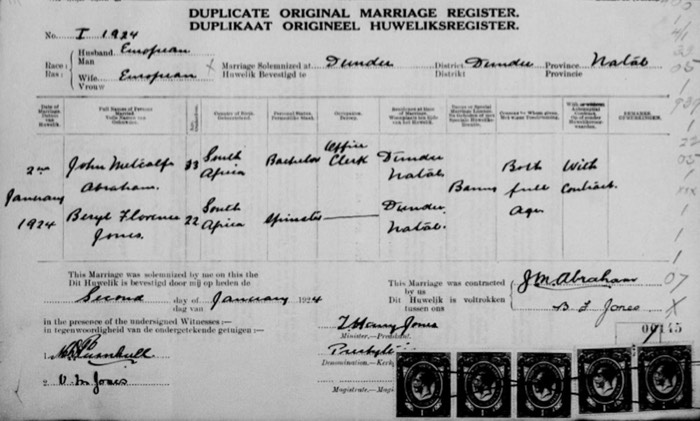 DUPLICATE ORIGINAL MARRIAGE REGISTER.
DUPLIKAAT ORIGINEEL HUWELIKSREGISTER.
No. I 1924
Race: Ras:
Husband Man European
Wife Vrouw European
Marriage Solemnized at Huwelik Bevestigd te Dundee
District Distrikt Dundee
Province Provincie Natal
Date of Marriage.
Full Names of Persons Married.
Country of Birth.
Personal Status.
Occupation.
Residence at Time of Marriage.
Consent by Whom given.
REMARKS.
2nd January 1924
John Metcalfe Abraham. 33 South Africa Bachelor Office Clerk Dundee Natal
Beryl Florence Jones. 22 South Africa Spinster Dundee Natal.
Banns Both full Age With Contract.
This Marriage was solemnized by me on this the
Dit Huwelik is bevestigd door mij op heden de
Second day of dag van January 1924
This Marriage was contracted by us
Dit Huwelik is voltrokken tussen ons
J M Abraham
B. F. Jones
in the presence of the undersigned Witnesses :—
in tegenwoordigheid van de ondergetekende getuigen :—
1.
2. V. M. Jones
Harry Jones
Minister.—
Presbyt
Denomination.—Kerk
Magistrate.—Magi
00145